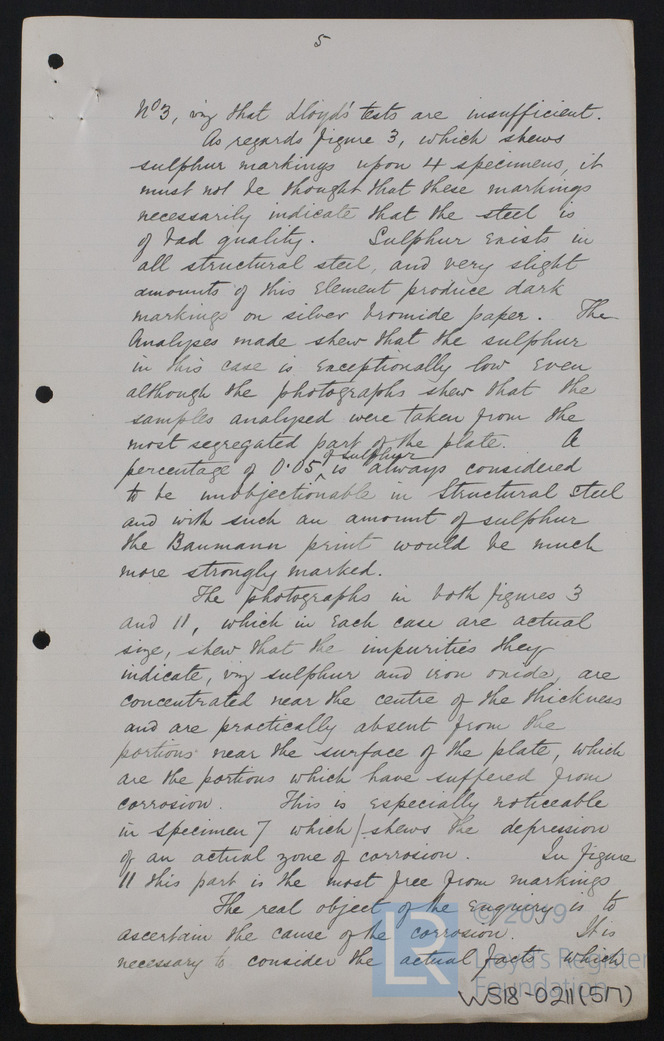 5
No 3, viz that Lloyd's tests are insufficient.
As regards figure 3, which shews
sulphur markings upon 4 specimens, it
must not be thought that these markings
necessarily indicate that the steel is
of bad quality. Sulphur exists in
all structural steel, and very slight
amounts of this element produce dark
markings on silver bromide paper. The
Analyses made shew that the sulphur
in this case is exceptionally low even
although the photographs shew that the
samples analysed were taken from the
most segregated part of the plate. A
of sulphur
percentage of 0.05 ^ is always considered
to be unobjectionable in Structural Steel
and with such an amount of sulphur
the Baumann print would be much
more strongly marked.
The photographs in both figures 3
and 11, which in each case are actual
size, shew that the impurities they
indicate, viz sulphur and iron oxide, are
concentrated near the centre of the thickness
and are practically absent from the
portions near the surface of the plate, which
are the portions which have suffered from
corrosion. This is especially noticeable
in specimen 7 which shews the depression
of an actual zone of corrosion. In figure
11 this part is the most free from markings
The real object of the enquiry is to
ascertain the cause of the corrosion. It is
necessary to consider the actual facts which
LR
© 2019
Lloyd's Register
Foundation
WS18-0211(5/7)